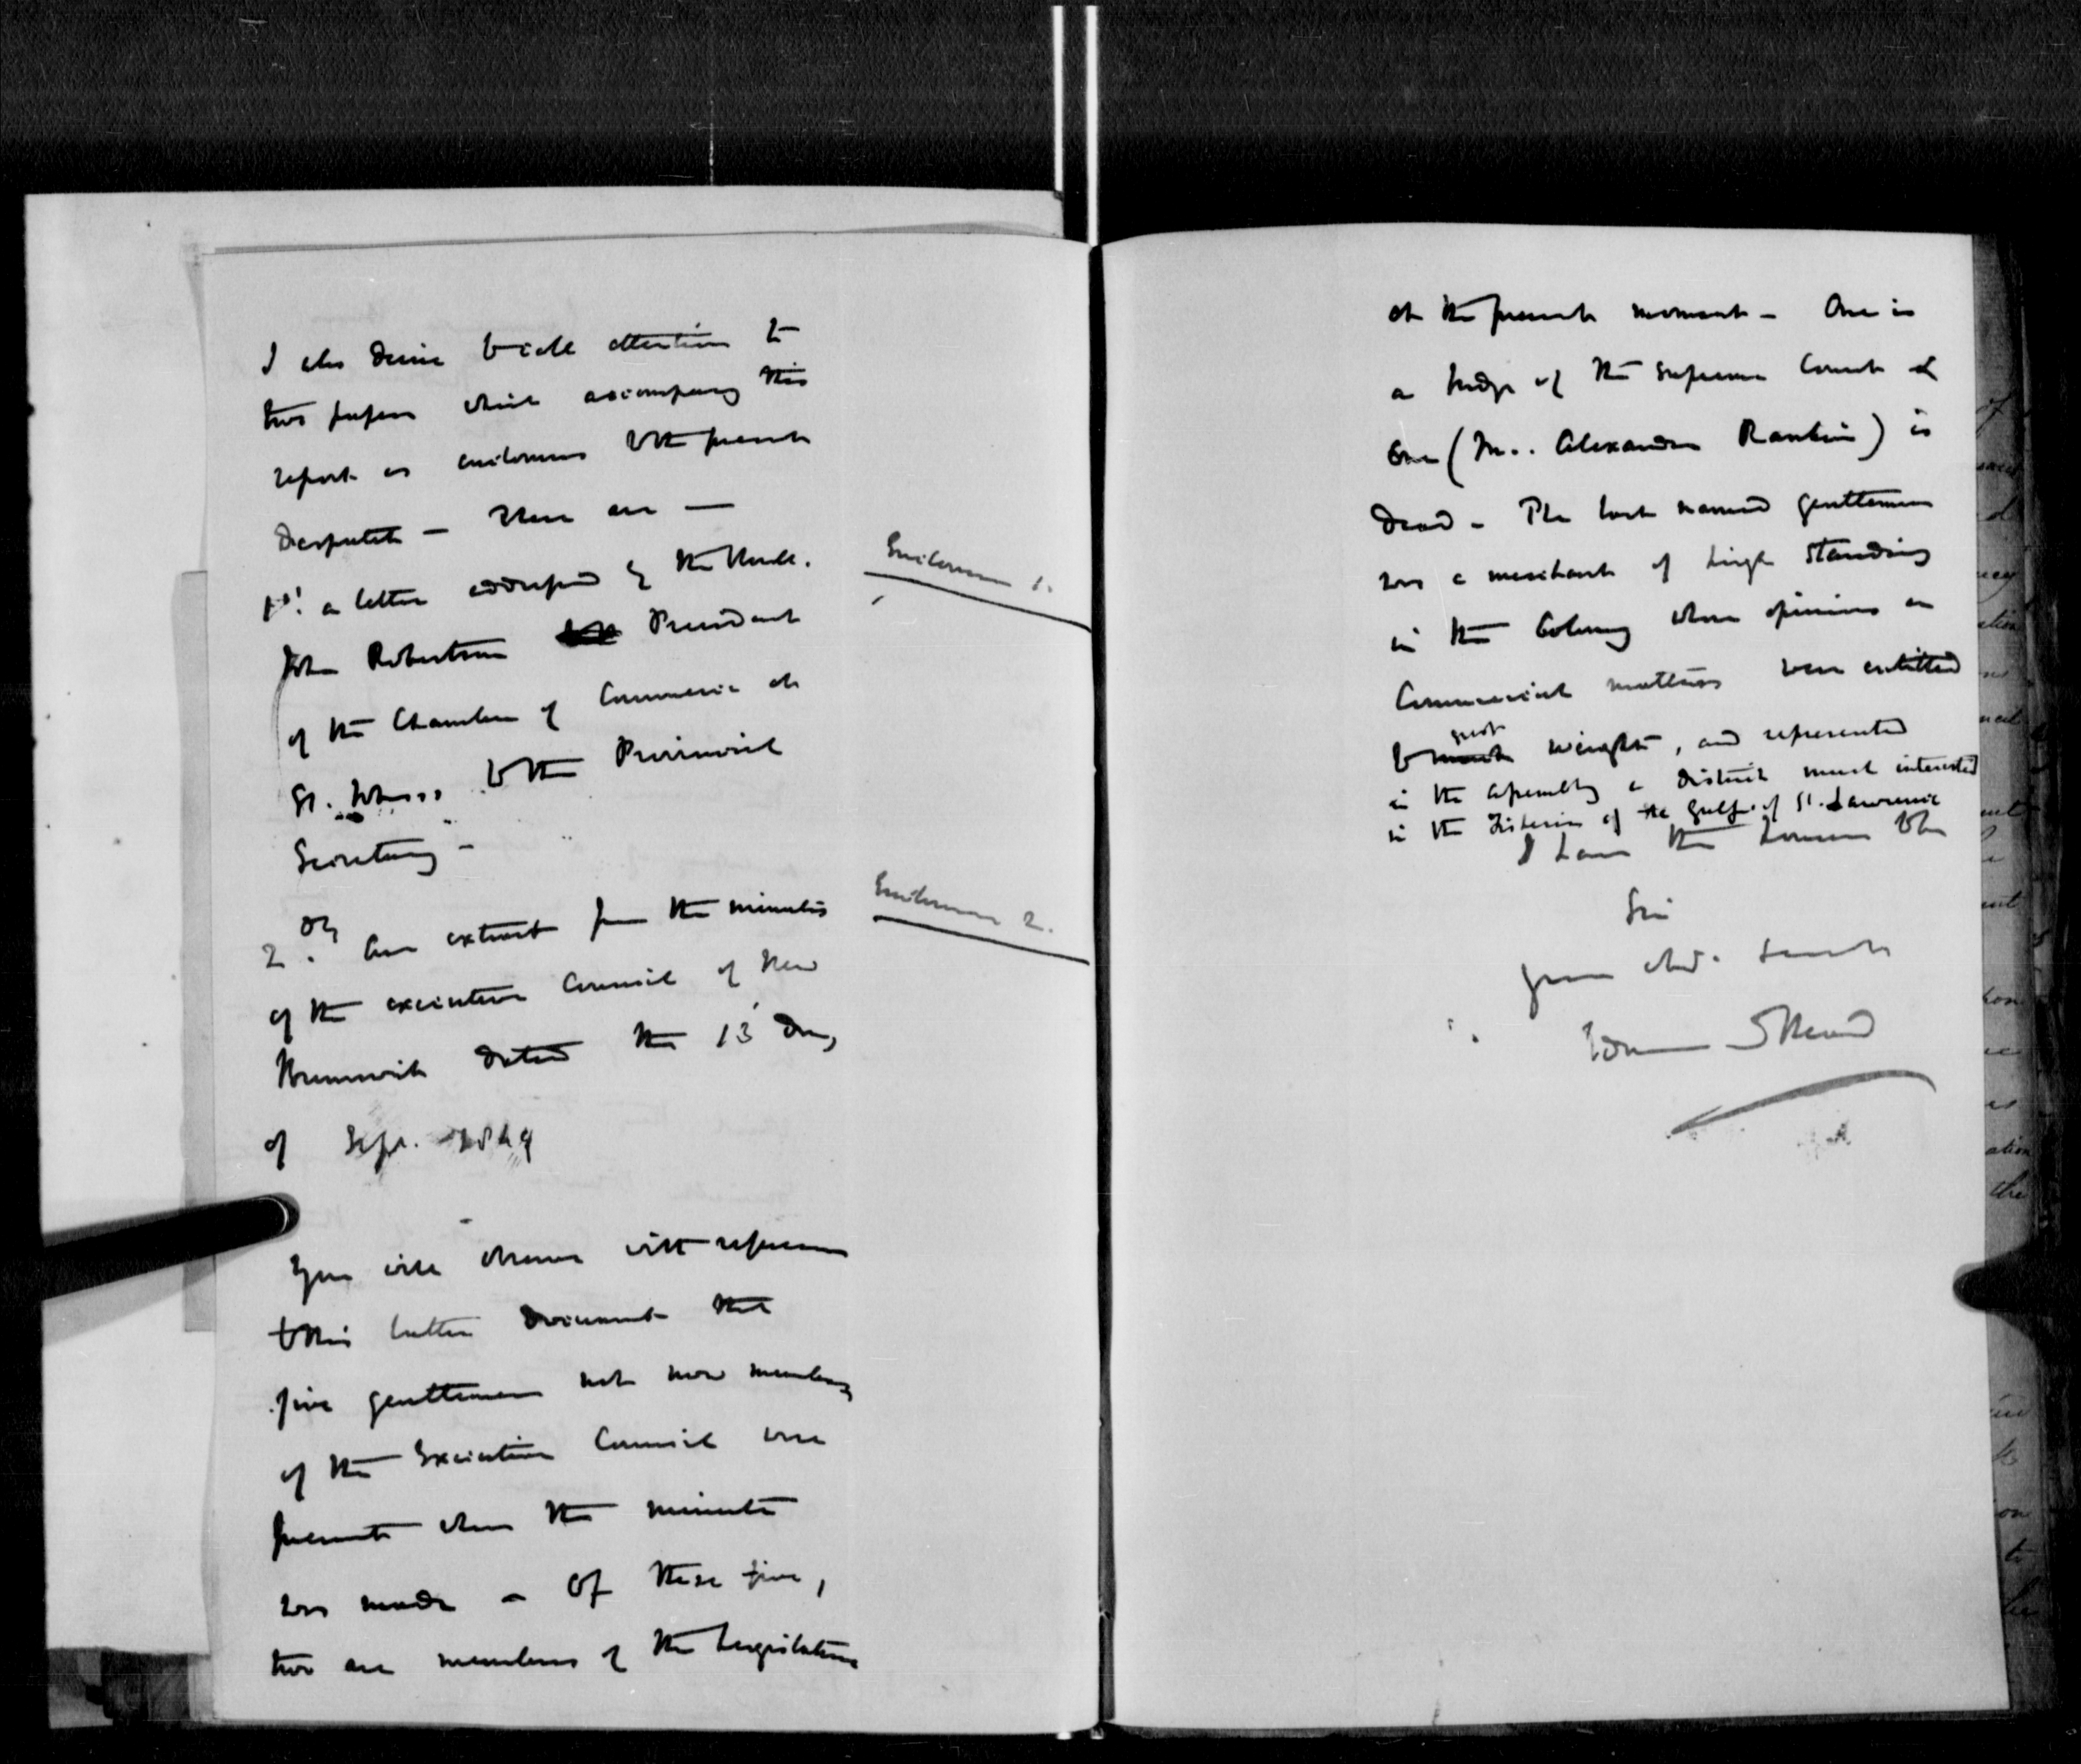 I also desire to call attention to
two papers which accompany this
report as enclosures to the present
despatch — These are —
1st. a letter addressed by the Honble.
John Robertson President
of the Chamber of Commerce at
St. John to the Provincial
Secretary –
2dly. An extract from the minutes
of the executive Council of New
Brunswick dated the 13 day
of Sept. 1849
You will observe with reference
to this latter document that
five gentlemen not now members
of the Executive Council were
present when the minute
was made – Of these five,
two are members of the Legislature
Enclosure 1.
Enclosure 2.
at the present moment – One is
a Judge of the Supreme Court &
One (Mr. Alexander Rankin) is
dead – The last named gentleman
was a merchant of high standing
in the Colony whose opinions on
Commercial matters were entitled
great
to much weight, and represented
in the Assembly a district much interested
in the Fisheries of the Gulf of St. Lawrence
I have the honour to be
Sir
your obdt. servt
Edmund Head